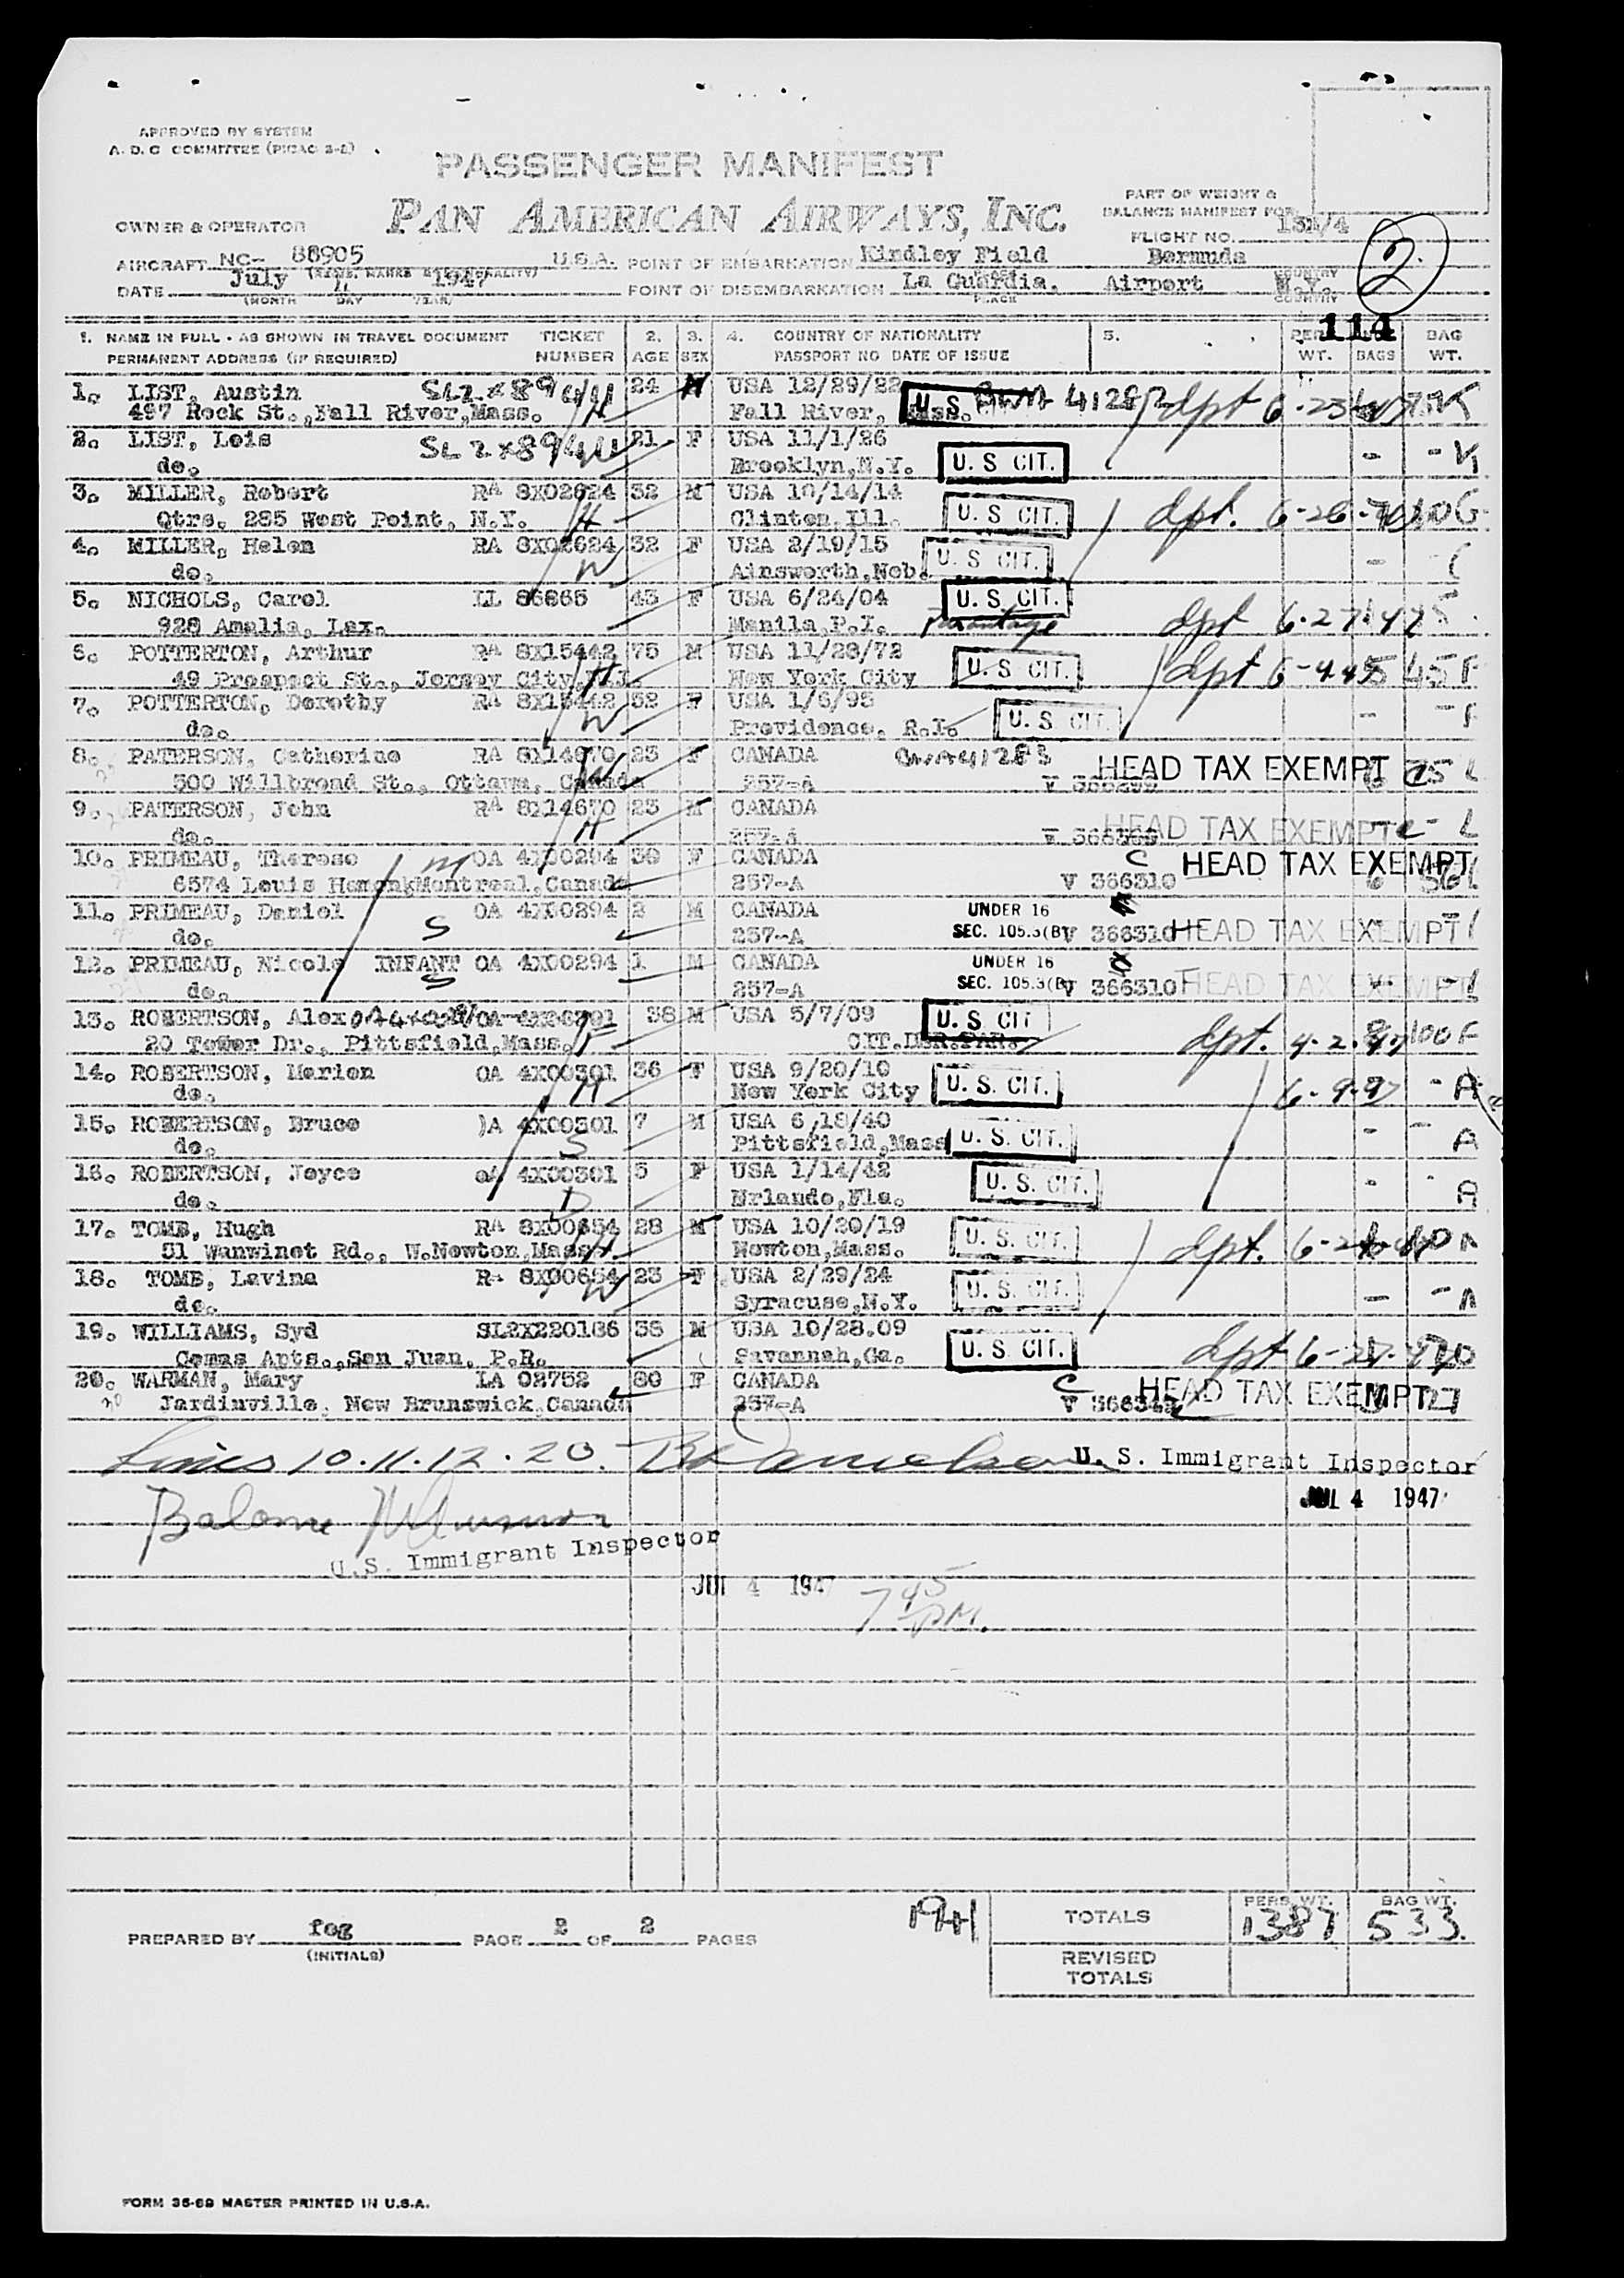 APPROVED BY SYSTEM
A. D. C COMMITTEE (PICAO 2-2)
PASSENGER MANIFEST
PAN AMERICAN AIRWAYS, INC.
PART OF WEIGHT &
BALANCE MANIFEST FOR
OWNER & OPERATOR
FLIGHT NO. 131/4
AIRCRAFT NC- 88905 U.S.A. POINT OF EMBARKATION Kindley Field Bermuda
(NAME, MARKS & NATIONALITY) PLACE COUNTRY
DATE July 4 1947 POINT OF DISEMBARKATION La Guardia. Airport N.Y.
(MONTH DAY YEAR) PLACE COUNTRY
2.
114
1. NAME IN FULL - AS SHOWN IN TRAVEL DOCUMENT TICKET 2. 3. 4. COUNTRY OF NATIONALITY 5. BAG
PERMANENT ADDRESS (IF REQUIRED) NUMBER AGE SEX PASSPORT NO DATE OF ISSUE WT. BAGS WT.
1. LIST, Austin SL2x8944 24 M USA 12/29/22
497 Rock St.,Fall River,Mass. H Fall River, Mass. U.S dpt 6-23-47 K
2. LIST, Lois SL2x8944 21 F USA 11/1/26
do. W Brooklyn,N.Y. U. S CIT. - - K
3. MILLER, Robert RA 8X02624 32 M USA 10/14/14
Qtrs. 285 West Point, N.Y. H Clinton,Ill. U. S CIT. dpt. 6-26-
4. MILLER, Helen RA 8X02624 32 F USA 2/19/15
do. W Ainsworth,Neb. U. S CIT. -
5. NICHOLS, Carol LL 86865 43 F USA 6/24/04 U. S. CIT.
928 Amalia, Lax. Manila,P.I. Parentage dpt 6-27-47
6. POTTERTON, Arthur RA 8X15442 75 M USA 11/28/72
49 Prospect St., Jersey City, N.J. H New York City U. S CIT. dpt 6-4-45 45 F
7. POTTERTON, Dorothy RA 8X15442 52 F USA 1/6/95
do. W Providence, R.I. U. S CIT. - - F
8. PATERSON, Catherine RA 8X14670 23 F CANADA HEAD TAX EXEMPT
500 Willbrond St., Ottawa, Canada W 257-A V
9. PATERSON, John RA 8X14670 23 M CANADA HEAD TAX EXEMPT
do. H 257-A V
10. PRIMEAU, Therese M OA 4X00294 30 F CANADA C HEAD TAX EXEMPT
6574 Louis Hemon,Montreal,Canada 257-A V 366310
11. PRIMEAU, Daniel OA 4X00294 2 M CANADA UNDER 16
do. S 257-A SEC. 105.3(B) V 366310 HEAD TAX EXEMPT
12. PRIMEAU, Nicole INFANT OA 4X00294 1 M CANADA UNDER 16
do. S 257-A SEC. 105.3(B) V 366310 HEAD TAX EXEMPT
13. ROBERTSON, Alex OA 4X00301 38 M USA 5/7/09 U. S. CIT
20 Tower Dr., Pittsfield,Mass. F CIT.DER.PAR. dpt. 4-2-47 100 F
14. ROBERTSON, Marion OA 4X00301 36 F USA 9/20/10
do. New York City U. S. CIT. 6-9-47 - A
15. ROBERTSON, Bruce OA 4X00301 7 M USA 6,18/40
do. S Pittsfield,Mass U. S. CIT. - - A
16. ROBERTSON, Joyce OA 4X00301 5 F USA 1/14/42
do. D Orlando,Fla. U. S. CIT. - A
17. TOMB, Hugh RA 8X00654 28 M USA 10/20/19
81 Wanwinet Rd., W.Newton,Mass. H Newton,Mass. U. S. CIT. dpt.
18. TOMB, Lavina RA 8X00654 23 F USA 2/29/24
do. W Syracuse,N.Y. U. S. CIT. - -
19. WILLIAMS, Syd SL2X220186 38 M USA 10/28.09
Comas Apts.,San Juan, P.R. Savannah,Ga. U. S. CIT. dpt 6-27-
20. WARMAN, Mary LA 02752 80 F CANADA C HEAD TAX EXEMPT
Jardinville, New Brunswick,Canada 257-A V 27
Lines 10.11.12.20. U. S. Immigrant Inspector
JUL 4 1947
U.S. Immigrant Inspector
JUL 4 1947
7 45 PM.
TOTALS PERS. WT. BAG WT.
1387 533.
PREPARED BY feg PAGE 2 OF 2 PAGES
(INITIALS)
REVISED
TOTALS
FORM 35-69 MASTER PRINTED IN U.S.A.